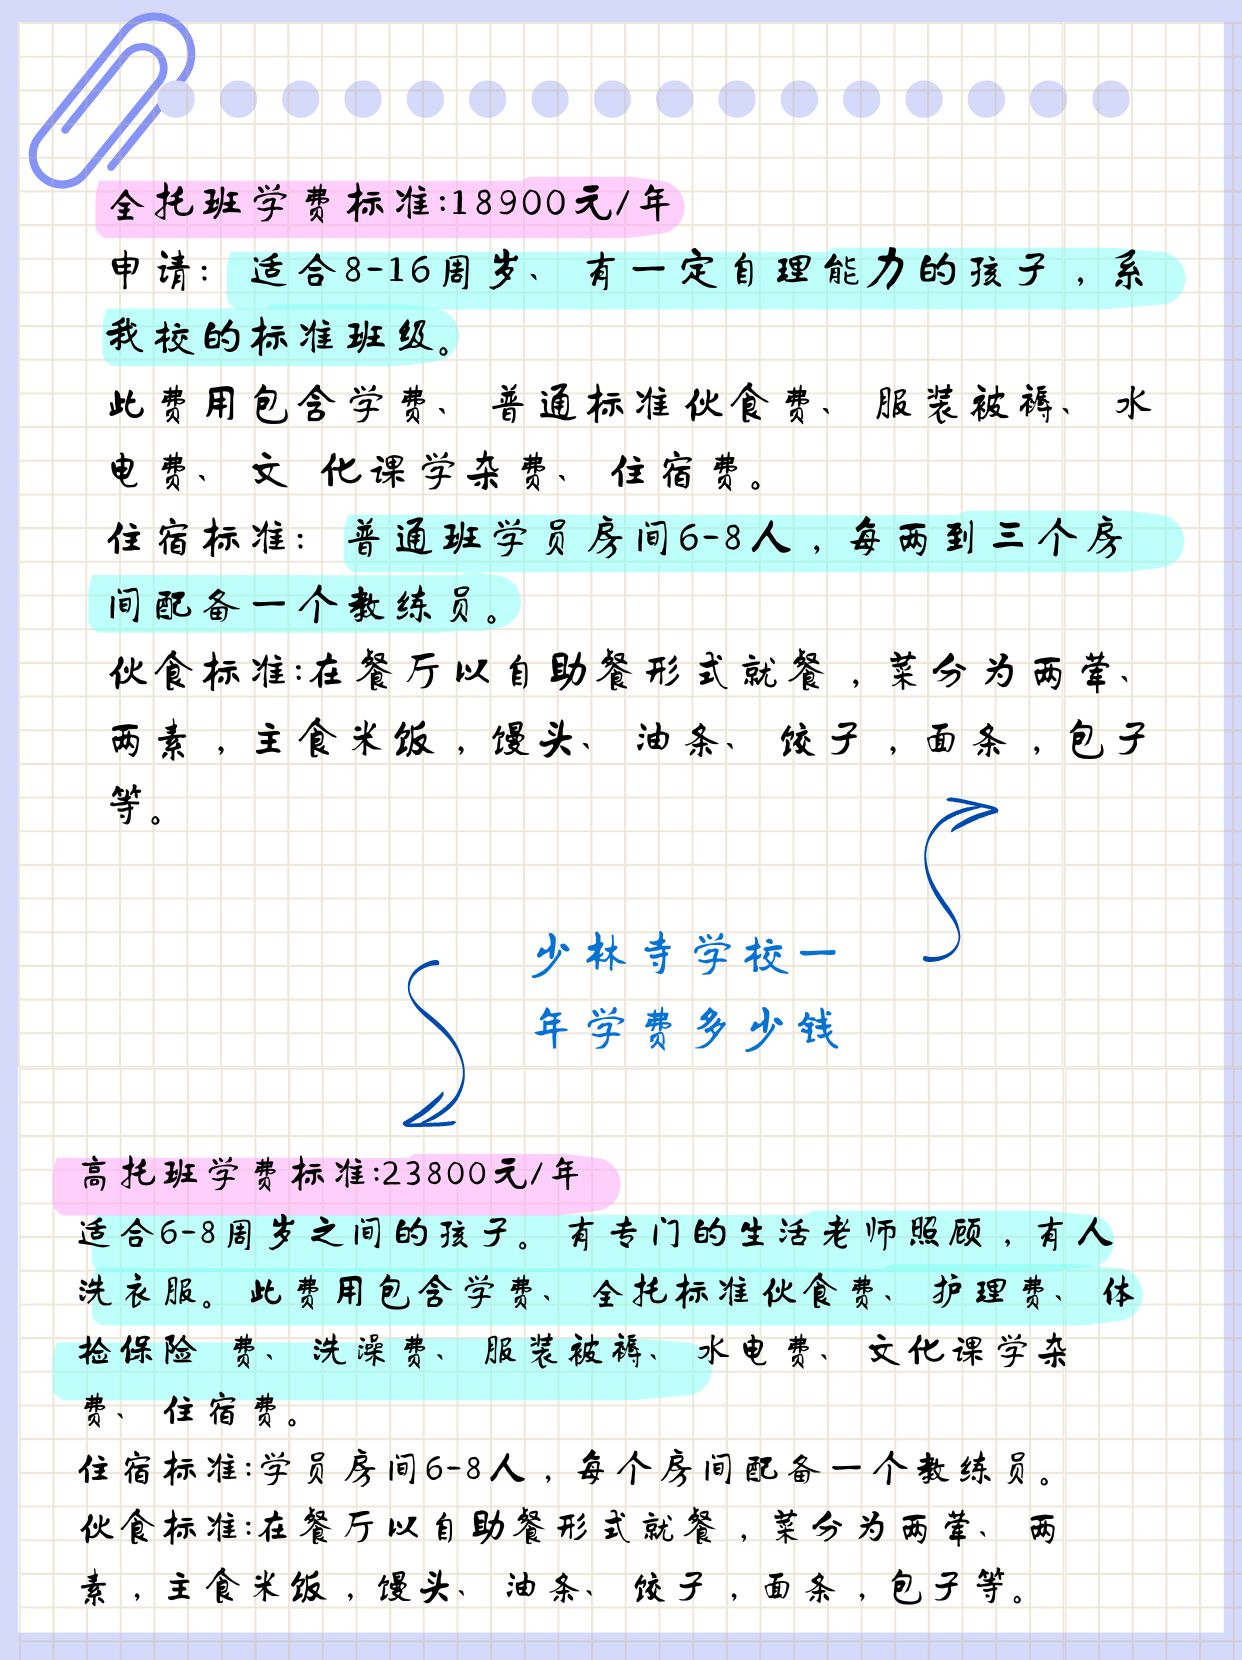 全托班学费标准:18900元/年
申请: 适合8-16周岁、有一定自理能力的孩子，系
我校的标准班级。
此费用包含学费、普通标准伙食费、服装被褥、水
电费、文 化课学杂费、住宿费。
住宿标准: 普通班学员房间6-8人，每两到三个房
间配备一个教练员。
伙食标准:在餐厅以自助餐形式就餐，菜分为两荤、
两素，主食米饭，馒头、油条、饺子，面条，包子
等。
少林寺学校一
年学费多少钱
高托班学费标准:23800元/年
适合6-8周岁之间的孩子。有专门的生活老师照顾，有人
洗衣服。此费用包含学费、全托标准伙食费、护理费、体
检保险 费、洗澡费、服装被褥、水电费、文化课学杂
费、住宿费。
住宿标准:学员房间6-8人，每个房间配备一个教练员。
伙食标准:在餐厅以自助餐形式就餐，菜分为两荤、两
素，主食米饭，馒头、油条、饺子，面条，包子等。